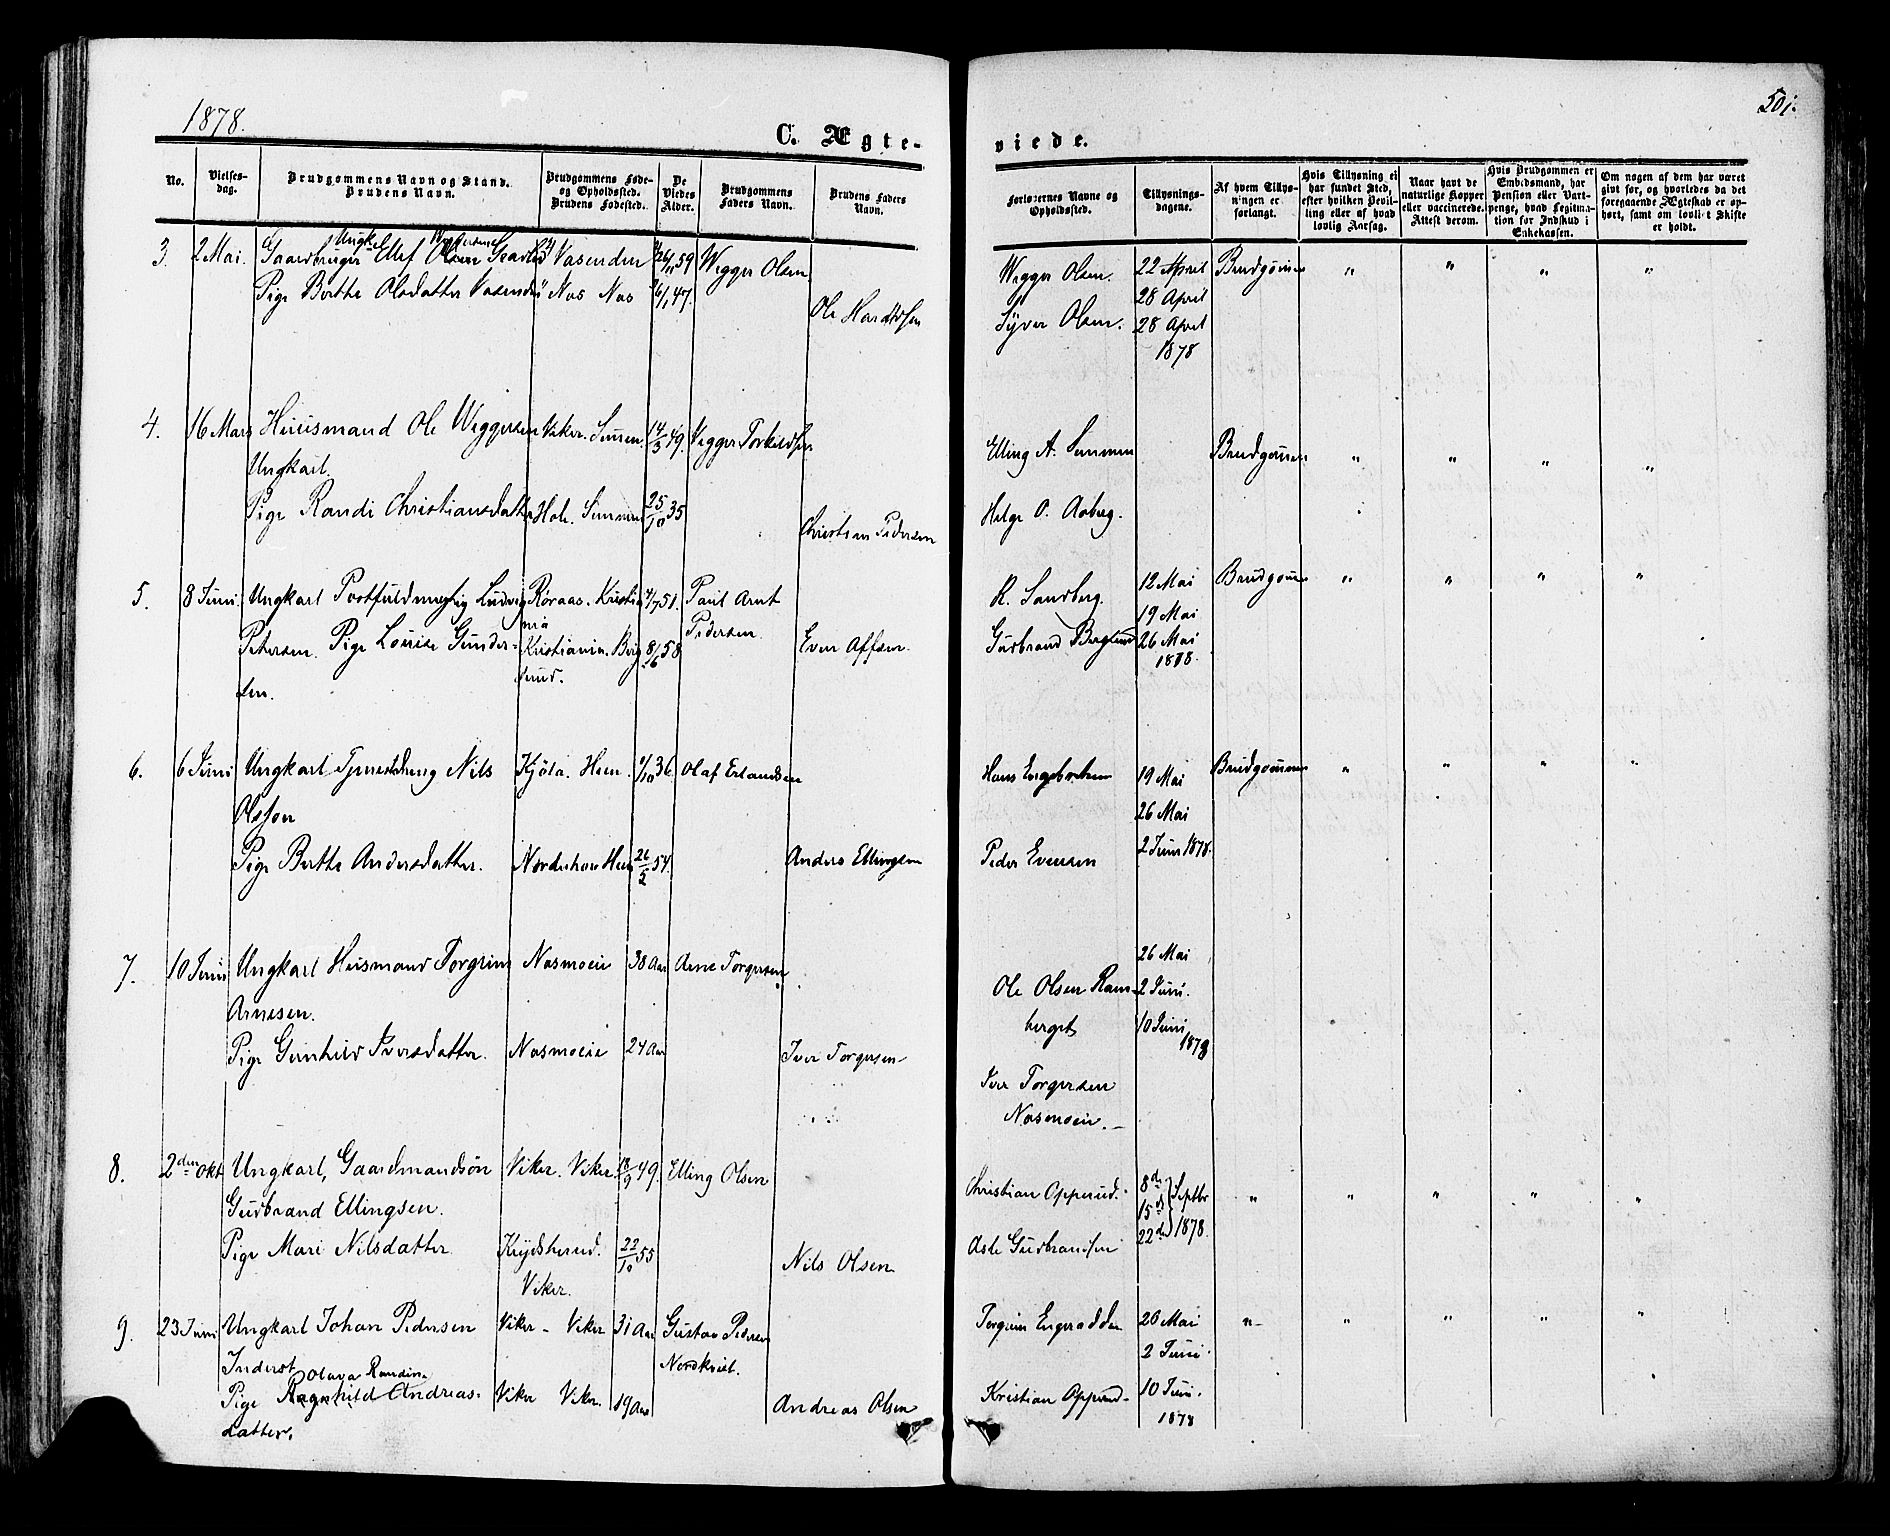 1878.
501.
C. Ægte-
viede.
No.
Vielses-
dag.
Brudgommens Navn og Stand.
Brudens Navn.
Brudgommens Føde-
og Opholdssted.
Brudens Fødested.
De
Viedes
Alder.
Brudgommens
Faders Navn.
Brudens Faders
Navn.
Forlovernes Navne og
Opholdssted.
Tillysnings-
dagene.
Af hvem Tillys-
ningen er
forlangt.
Hvis Tillysning ei
har fundet Sted,
efter hvilken Bevil-
ling eller af hvad
lovlig Aarsag.
Naar havt de
naturlige Kopper
eller vaccinerede.
Attest derom.
Hvis Brudgommen er
Embedsmand, har
Pension eller Vart-
penge, hvad Legitima-
tion for Indskud i
Enkekassen.
Om nogen af dem har været
givt før, og hvorledes da det
foregaaende Ægteskab er op-
hørt, samt om lovligt Skifte
er holdt.
3. 2 Mai. Gaardbruger Ungk. Ellef Olsen Vasenden 26/11 59 Wegger Olsen
Pige Berthe Olsdatter Vasenden Nas Nas 16/1 47.
Ole Haraldsen
Wegger Olsen. 22 April Brudgommen " " " "
28 April
Syver Olsen. 28 April
1878
4. 16 Mars Huusmand Ole Weggersen Viker. Semmen. 14/3 49. Vegger Torkildsen
Ungkarl.
Pige Randi Christiansdatter Hole. Semmen 25/10 35
Christian Pedersen
Elling A. Semmen Brudgommen " " " "
Helge O. Aaberg.
5. 8 Juni Ungkarl Postfuldmægtig Ludvig Røraas. Kristia 4/7 51. Paul Arnt
nia Pedersen.
Petersen. Pige Louise Gunder- Kristiania. Berg 8/6 58 Even Affsen.
sen. sund.
R. Sandberg. 12 Mai Brudgommen " " " "
19 Mai
Gudbrand Berglund 26 Mai
1878.
6. 6 Juni Ungkarl Tjenestdreng Nils Kjøla. Heen. 1/10 36. Olaf Erlandsen
Olsson
Pige Berthe Andersdatter. Norderhov Heen 26/2 54. Anders Ellingsen
Hans Engebretsen 19 Mai Brudgommen " " " "
26 Mai
Peder Evensen 2 Juni 1878.
7. 10 Juni Ungkarl Husmand Torgrim Nasmoeie 38 Aar Arne Torgersen
Arnesen.
Pige Gunhild Iversdatter. Nasmoeie 24 Aar Iver Torgersen
26 Mai
Ole Olsen Ram- 2 Juni.
berget 10 Juni
1878
Iver Torgersen
Nasmoein.
8. 2den Okt Ungkarl, Gaardmandsøn Viker. Viker. 18/9 49. Elling Olsen
Gudbrand Ellingsen.
Pige Mari Nilsdatter. Krydsherred. 22/10 55
Viker. Nils Olsen
Christian Opperud. 8de
15de Septbr " " " " "
22de 1878.
Asle Gudbrandsen
9. 23 Juni Ungkarl Johan Pedersen Viker - Viker 31 Aar Gustav Pedersen
Inderst Nordkvist.
Olava Randine
Pige Ragnhild Andreas- Viker Viker. 19 Aar Andreas Olsen
datter.
Torgrim Engeradden 26 Mai " " " " "
2 Juni
Kristian Opperud 10 Juni.
1878